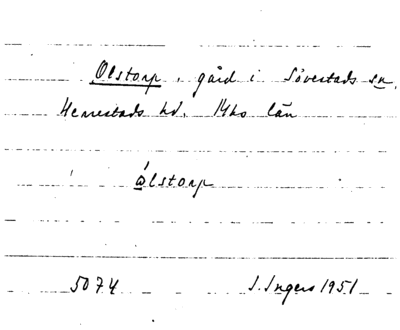 Olstorp, gård i Sövestads sn,
Herrestads hd. Mhs län
ólstorp
5074 I. Ingers 1951